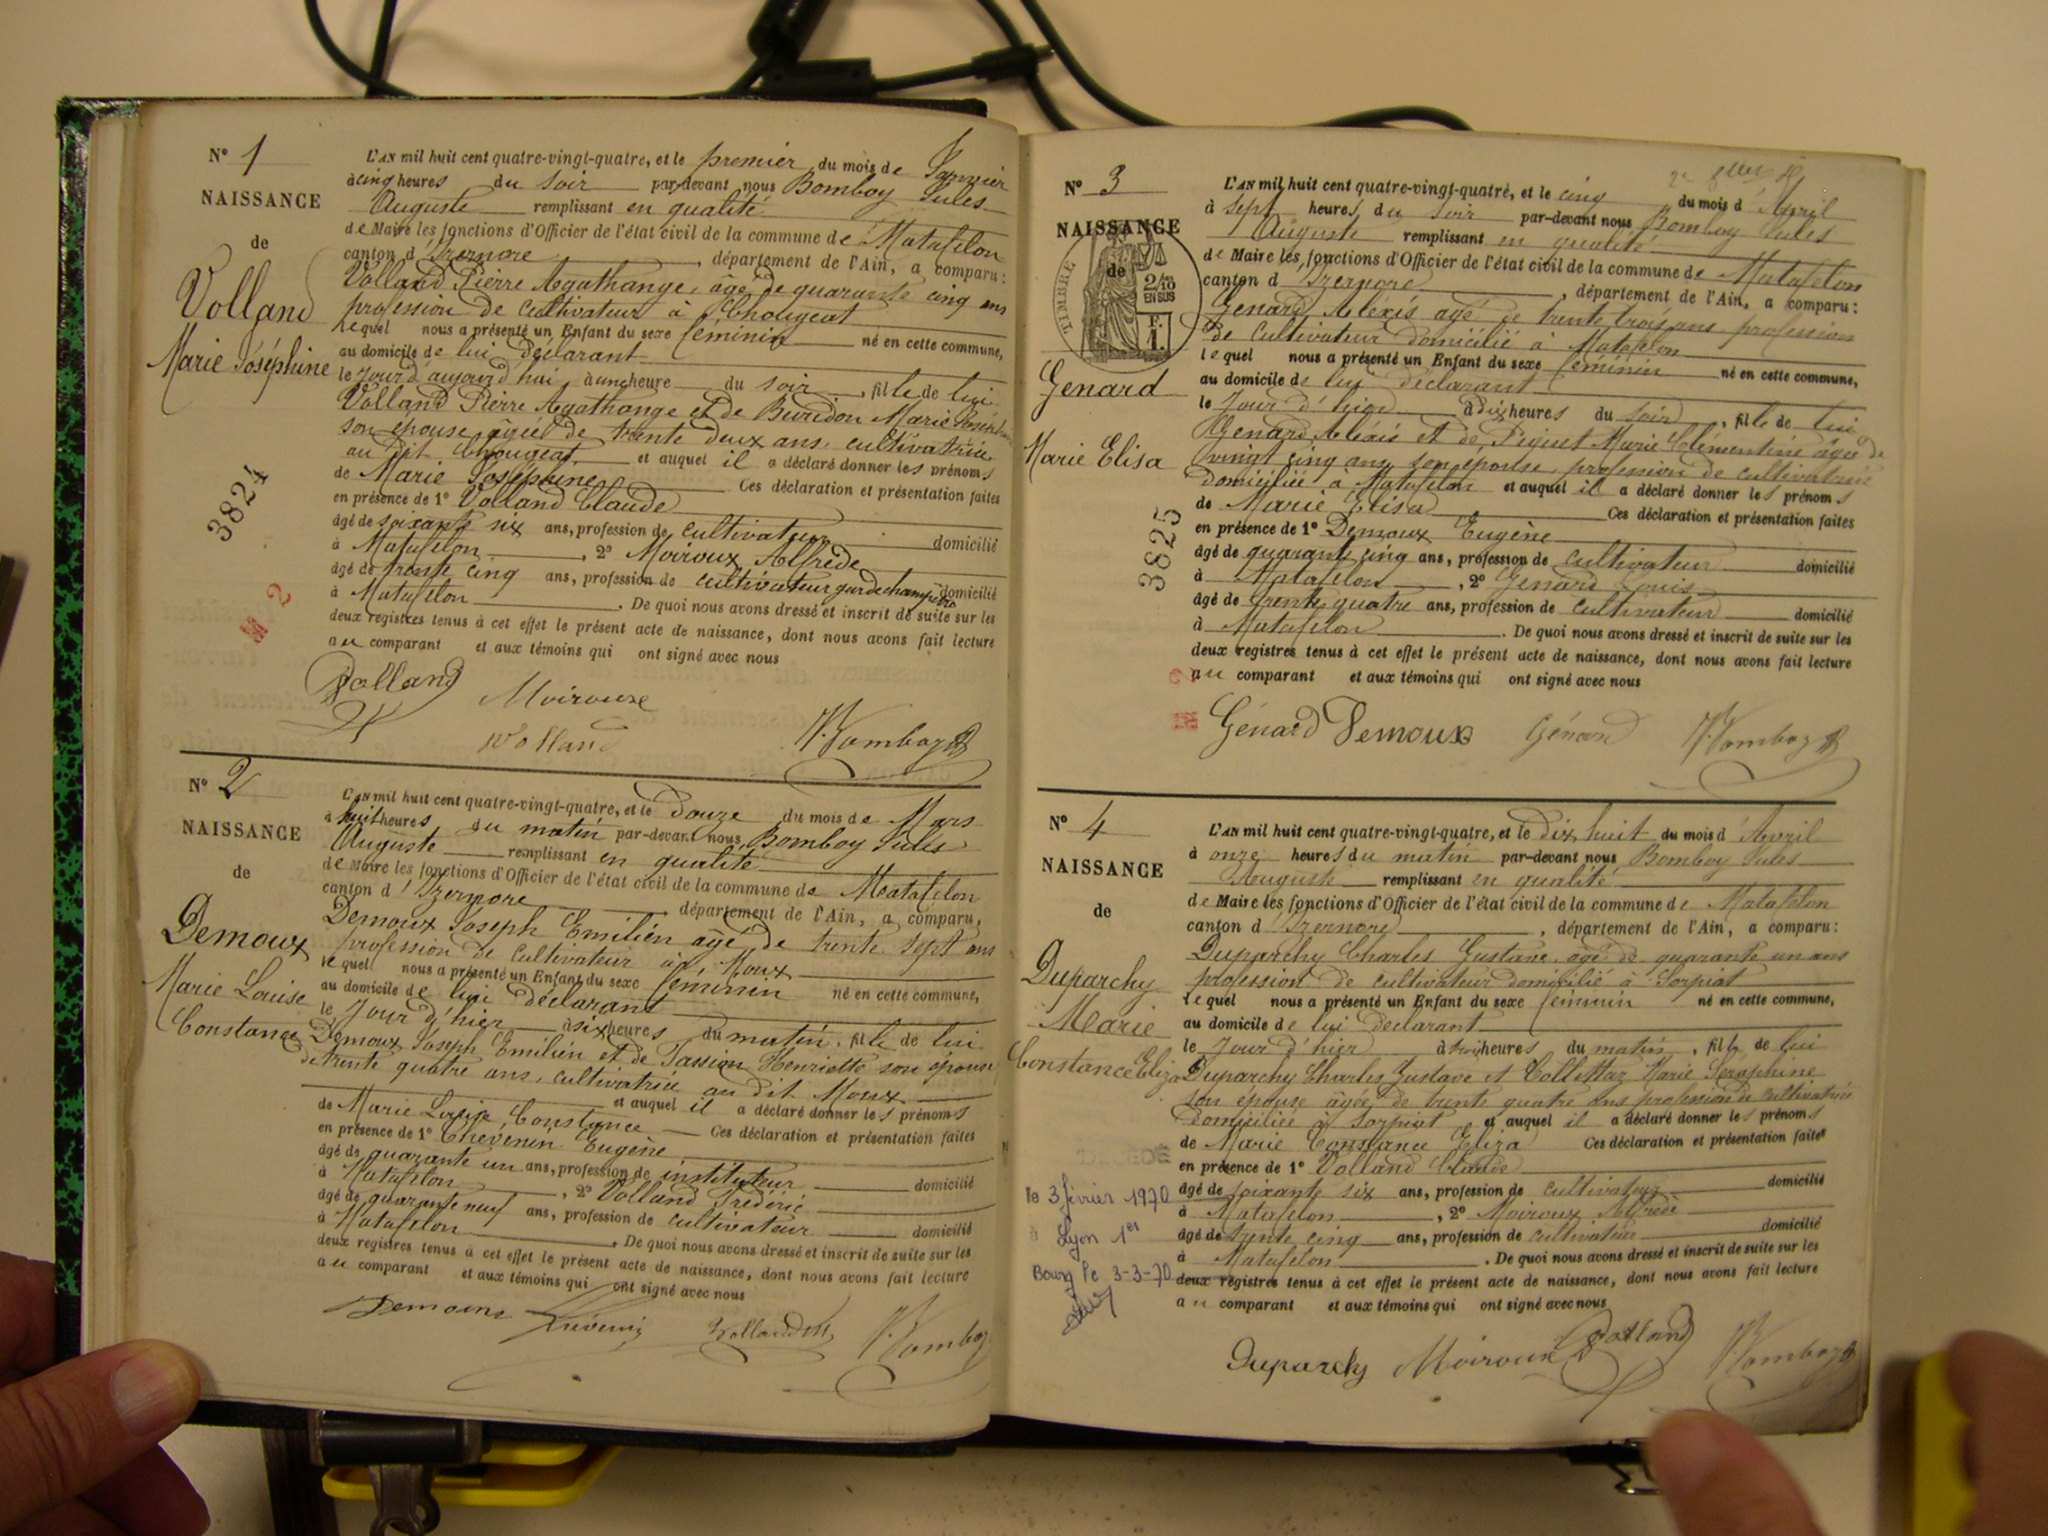 N° 1
NAISSANCE
de
Volland
Marie Joséphine
3824
M 2
L'AN mil huit cent quatre-vingt-quatre, et le premier du mois de Janvier
à cinq heures du soir par-devant nous Bomboy Jules
Auguste remplissant en qualité
de Maire les fonctions d'Officier de l'état civil de la commune de Matafelon
canton d'Izernore, département de l'Ain, a comparu:
Volland Pierre Agathange, âgé de quarante cinq ans
profession de cultivateur à Chougeat
lequel nous a présenté un Enfant du sexe féminin né en cette commune,
au domicile de lui déclarant
le jour d'aujourd'hui à une heure du soir, fille de lui
Volland Pierre Agathange et de Buridon Marie Joséphine
son épouse âgée de trente deux ans, cultivatrice
au dit Chougeat et auquel il a déclaré donner les prénoms
de Marie Joséphine Ces déclaration et présentation faites
en présence de 1° Volland Claude
âgé de soixante six ans, profession de cultivateur domicilié
à Matafelon, 2° Moiroux Alfrède
âgé de trente cinq ans, profession de cultivateur garde champêtre domicilié
à Matafelon. De quoi nous avons dressé et inscrit de suite sur les
deux registres tenus à cet effet le présent acte de naissance, dont nous avons fait lecture
au comparant et aux témoins qui ont signé avec nous
Volland Moiroux
Volland Bomboy
N° 2
NAISSANCE
de
Demoux
Marie Louise
Constance
L'AN mil huit cent quatre-vingt-quatre, et le douze du mois de Mars
à huit heures du matin par-devant nous Bomboy Jules
Auguste remplissant en qualité
de Maire les fonctions d'Officier de l'état civil de la commune de Matafelon
canton d'Izernore département de l'Ain, a comparu,
Demoux Joseph Emilien âgé de trente sept ans
profession de cultivateur à Moux
lequel nous a présenté un Enfant du sexe féminin né en cette commune,
au domicile de lui déclarant
le jour d'hier à six heures du matin, fille de lui
Demoux Joseph Emilien et de Tassion Henriette son épouse
de trente quatre ans, cultivatrice au dit Moux
et auquel il a déclaré donner les prénoms
de Marie Louise Constance Ces déclaration et présentation faites
en présence de 1° Chevénin Eugène
âgé de quarante un ans, profession de instituteur domicilié
à Matafelon, 2° Volland Frédéric
âgé de quarante neuf ans, profession de cultivateur domicilié
à Matafelon. De quoi nous avons dressé et inscrit de suite sur les
deux registres tenus à cet effet le présent acte de naissance, dont nous avons fait lecture
au comparant et aux témoins qui ont signé avec nous
Demoux Chevenin Volland Bomboy
N° 3
NAISSANCE
de
TIMBRE
2/10
EN SUS
F.
1.
Genard
Marie Elisa
3825
M 2
L'AN mil huit cent quatre-vingt-quatre, et le cinq du mois d'Avril
à sept heures du soir par-devant nous Bomboy Jules
Auguste remplissant en qualité
de Maire les fonctions d'Officier de l'état civil de la commune de Matafelon
canton d'Izernore, département de l'Ain, a comparu:
Genard Aléxis âgé de trente trois ans profession
de cultivateur domicilié à Matafelon
lequel nous a présenté un Enfant du sexe féminin né en cette commune,
au domicile de lui déclarant
le jour d'hier à dix heures du soir, fille de lui
Genard Aléxis et de Piquet Marie Clémentine âgée de
vingt cinq ans son épouse, profession de cultivatrice
domiciliée à Matafelon et auquel il a déclaré donner les prénoms
de Marie Elisa Ces déclaration et présentation faites
en présence de 1° Demoux Eugène
âgé de quarante cinq ans, profession de cultivateur domicilié
à Matafelon, 2° Genard Louis
âgé de trente quatre ans, profession de cultivateur domicilié
à Matafelon. De quoi nous avons dressé et inscrit de suite sur les
deux registres tenus à cet effet le présent acte de naissance, dont nous avons fait lecture
au comparant et aux témoins qui ont signé avec nous
Génard Demoux Génard Bomboy
N° 4
NAISSANCE
de
Duparchy
Marie
Constance Eliza
le 3 février 1970
à Lyon 1er
Bourg le 3-3-70
L'AN mil huit cent quatre-vingt-quatre, et le dix huit du mois d'Avril
à onze heures du matin par-devant nous Bomboy Jules
Auguste remplissant en qualité
de Maire les fonctions d'Officier de l'état civil de la commune de Matafelon
canton d'Izernore, département de l'Ain, a comparu:
Duparchy Charles Gustave âgé de quarante un ans
profession de cultivateur domicilié à Corpiat
lequel nous a présenté un Enfant du sexe féminin né en cette commune,
au domicile de lui déclarant
le jour d'hier à trois heures du matin, fille de lui
Duparchy Charles Gustave et Collettaz Marie Séraphine
son épouse âgée de trente quatre ans profession de cultivatrice
domiciliée à Corpiat et auquel il a déclaré donner les prénoms
de Marie Constance Eliza Ces déclaration et présentation faites
en présence de 1° Volland Claude
âgé de soixante six ans, profession de cultivateur domicilié
à Matafelon, 2° Moiroux Alfrède
âgé de trente cinq ans, profession de cultivateur domicilié
à Matafelon. De quoi nous avons dressé et inscrit de suite sur les
deux registres tenus à cet effet le présent acte de naissance, dont nous avons fait lecture
au comparant et aux témoins qui ont signé avec nous
Duparchy Moiroux Volland Bomboy